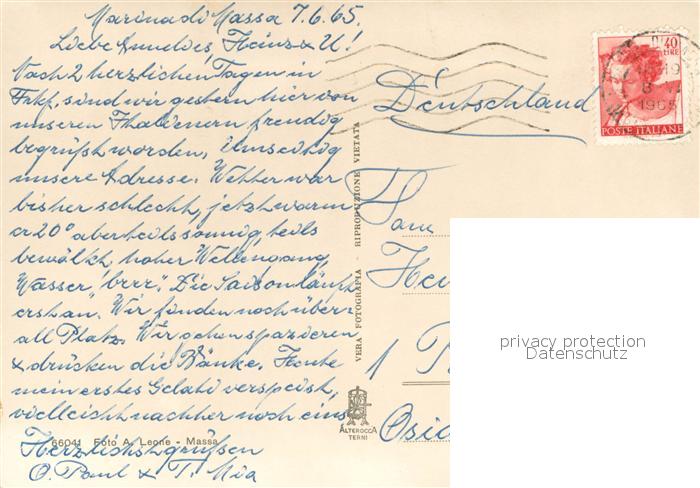 Marina di Massa 7.6.65.
Liebe Annelies, Heinz & U!
Nach 2 herzlichen Tagen in
Frkf. sind wir gestern hier von
unseren Italienern freudig
begrüßt worden, umseitig
unsere Adresse. Wetter war
bisher schlecht, jetzt warm
cr 20° aber teils sonnig, teils
bewölkt, hoher Wellengang,
Wasser "brrr". Die Saison läuft
erst an. Wir finden noch über-
all Platz. Wir gehen spazieren
& drücken die Bänke. Heute
mein erstes Gelati verspeist,
vielleicht nachher noch eins
Herzlichst grüßen
O. Paul & T. Mia
66041 Foto A. Leone - Massa
VERA FOTOGRAFIA - RIPRODUZIONE VIETATA
ALTEROCCA
TERNI
40
LIRE
POSTE ITALIANE
1965
Deutschland
Fam
Hei
1
privacy protection
Datenschutz